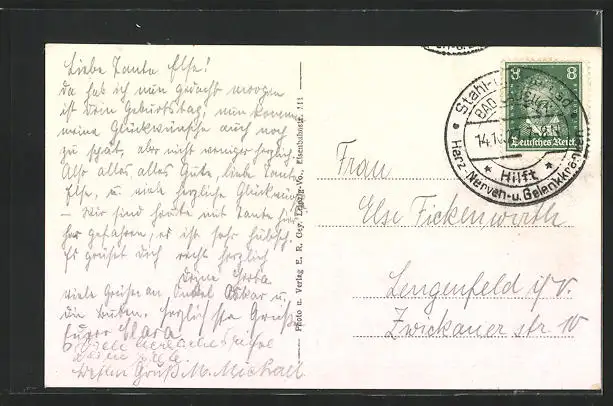 Liebe Tante Else!
Da hab ich nun gedacht morgen
ist Dein Geburtstag, nun kommen
meine Glückwünsche auch noch
zu spät, aber nicht weniger herzlich.
Also alles, alles Gute, liebe Tante
Else, u. viele herzliche Glückwünsche
– Wir sind heute mit Tante
her gefahren, es ist sehr hübsch.
Es grüsst Dich recht herzlich
Deine
viele Grüße an Onkel Oskar u.
die Buben. Herzlichste Grüße
Clara
viele herzliche Grüße
Besten Gruß M. Michael
Photo u. Verlag E. R. Gey, Leipzig-Vo., Eisenbahnstr. 111
8 8
Deutsches Reich
Stahl-
BAD
14.1
Hilft
Herz-Nerven-u.Gelenkkranken
Frau
Else Fickenwirth
Lengenfeld i/V.
Zwickauer str 10